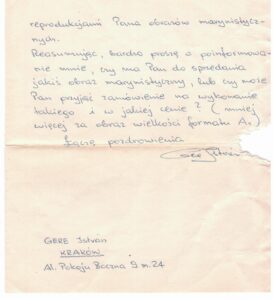 reprodukcjami Pana obrazów marynistycz-
nych.
Reasumując, bardzo proszę o poinformowa-
nie mnie, czy ma Pan do sprzedania
jakiś obraz marynistyczny, lub czy może
Pan przyjąć zamówienie na wykonanie
takiego i w jakiej cenie? (mniej
więcej za obraz wielkości formatu A4)
Łączę pozdrowienia
GERE Istvan
KRAKÓW
Al. Pokoju Boczna 9 m. 24